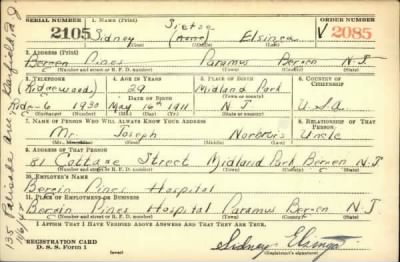 SERIAL NUMBER 1. NAME (Print) ORDER NUMBER
2105 Sidney (None) Elsinga V 2085
(First) (Middle) (Last)
2. ADDRESS (Print)
Bergen Pines Paramus Bergen N J
(Number and street or R. F. D. number) (Town) (County) (State)
3. TELEPHONE 4. AGE IN YEARS 5. PLACE OF BIRTH 6. COUNTRY OF CITIZENSHIP
(Ridgewood) 29 Midland Park
DATE OF BIRTH (Town or county)
Rdg-6 1930 May 16th 1911 N J U.S.A
(Exchange) (Number) (Mo.) (Day) (Yr.) (State or country)
7. NAME OF PERSON WHO WILL ALWAYS KNOW YOUR ADDRESS 8. RELATIONSHIP OF THAT PERSON
Mr. Joseph Uncle
(Mr., Mrs., Miss) (First) (Middle) (Last)
9. ADDRESS OF THAT PERSON
81 Cottage Street Midland Park Bergen N J
(Number and street or R. F. D. number) (Town) (County) (State)
10. EMPLOYER'S NAME
Bergin Pines Hospital
11. PLACE OF EMPLOYMENT OR BUSINESS
Bergin Pines Hospital Paramus Bergen N J
(Number and street or R. F. D. number) (Town) (County) (State)
I AFFIRM THAT I HAVE VERIFIED ABOVE ANSWERS AND THAT THEY ARE TRUE.
REGISTRATION CARD
D. S. S. Form 1 (over) Sidney Elsinga
(Registrant's signature)
135 Palisade Ave., Garfield N.J.